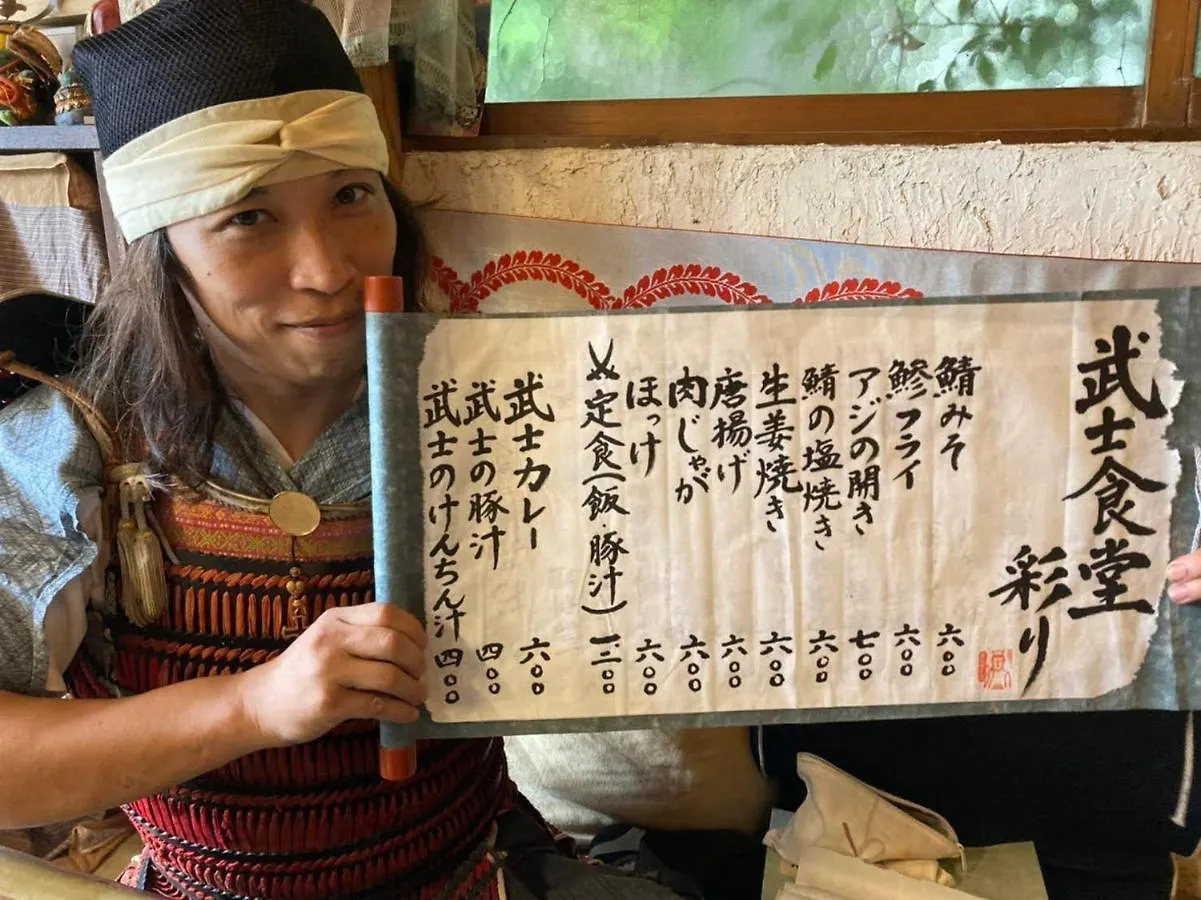 武士食堂
彩り
鯖みそ 六〇〇
鯵フライ 六〇〇
アジの開き 七〇〇
鯖の塩焼き 六〇〇
生姜焼き 六〇〇
唐揚げ 六〇〇
肉じゃが 六〇〇
ほっけ 六〇〇
⚔定食(飯・豚汁) 一、二〇〇
武士カレー 六〇〇
武士の豚汁 四〇〇
武士のけんちん汁 四〇〇